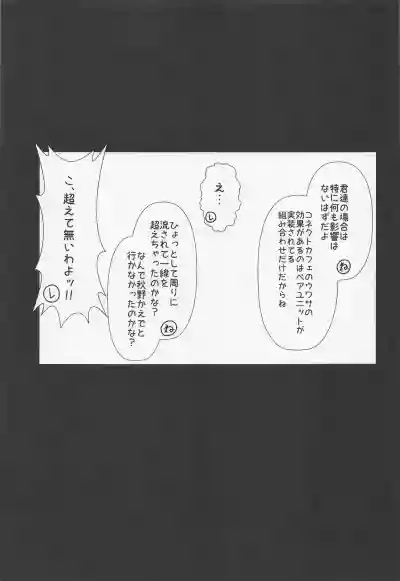 君達の場合は
特に何も影響は
ないはずだよ
コネクトカフェのウワサの
効果があるのはペアユニットが
実装されてる
組み合わせだけだからね
ね
え…
レ
ひょっとして周りに
流されて一線を
超えちゃったのかな？
なんで秋野かえでと
行かなかったのかな？
ね
こ、超えて無いわよッ!!
レ